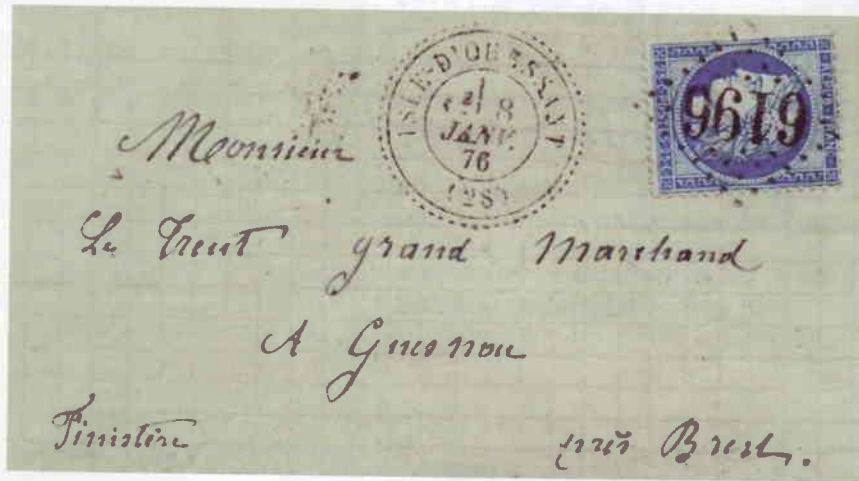 ISLE-D'OUESSANT
8
JANV.
76
(28)
6196
Monsieur
Le Treut grand Marchand
A Guesnou
Finistère près Brest.